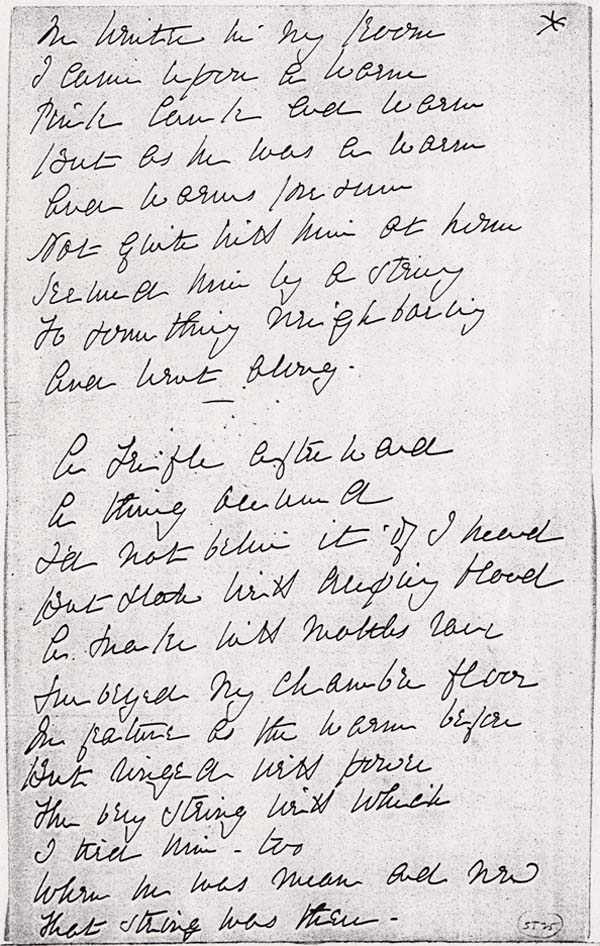 *
In Winter in my Room
I came upon a Worm
Pink lank and warm
But as he was a worm
And worms presume
Not quite with him at home
Secured him by a string
To something neighboring
And went along -
A Trifle afterward
A thing occurred
I'd not believe it if I heard
But state with creeping blood
A snake with mottles rare
Surveyed my chamber floor
In feature as the worm before
But ringed with power
The very string with which
I tied him - too
When he was mean and new
That string was there -